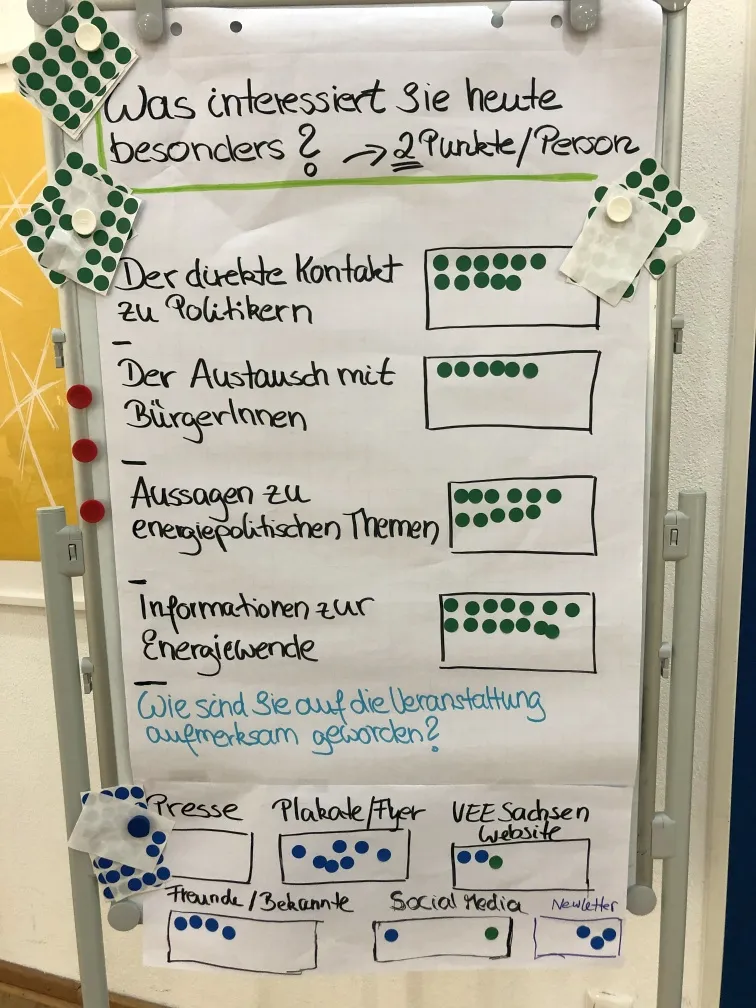 Was interessiert Sie heute
besonders? → 2 Punkte/Person
Der direkte Kontakt
zu Politikern
Der Austausch mit
BürgerInnen
Aussagen zu
energiepolitischen Themen
Informationen zur
Energiewende
Wie sind Sie auf die Veranstaltung
aufmerksam geworden?
Presse
Plakate/Flyer
VEE Sachsen
Website
Freunde/Bekannte
Social Media
Newletter